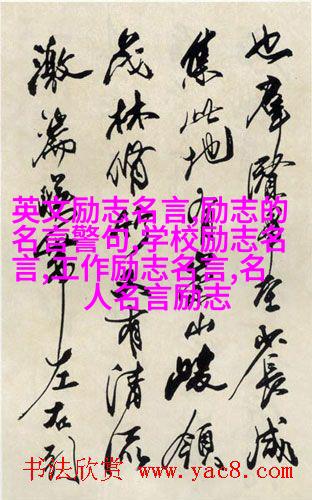 也群賢畢至少長咸
集此地有崇山峻領
茂林脩竹又有清流
激湍暎帶左右引
英文励志名言,励志的
名言警句,学校励志名
言,工作励志名言,名
人名言励志
书法欣赏 www.yac8.com